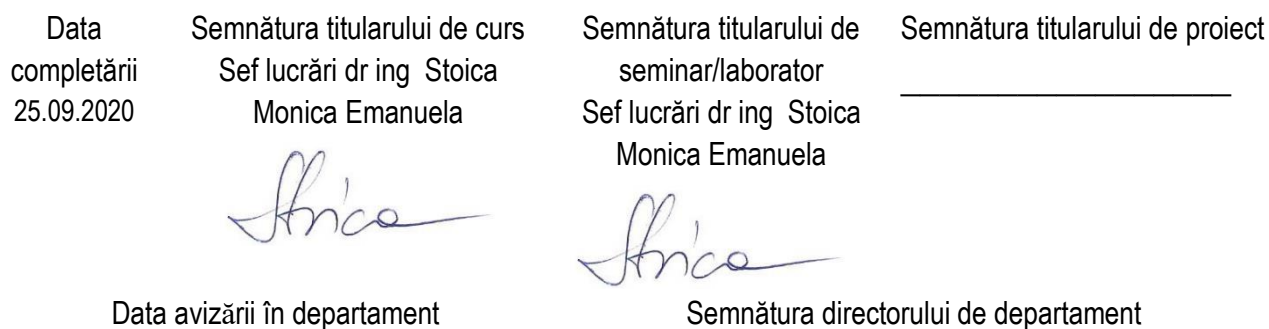 Data
completării
25.09.2020
Semnătura titularului de curs
Sef lucrări dr ing Stoica
Monica Emanuela
Stoica
Semnătura titularului de
seminar/laborator
Sef lucrări dr ing Stoica
Monica Emanuela
Stoica
Semnătura titularului de proiect
Data avizării în departament
Semnătura directorului de departament